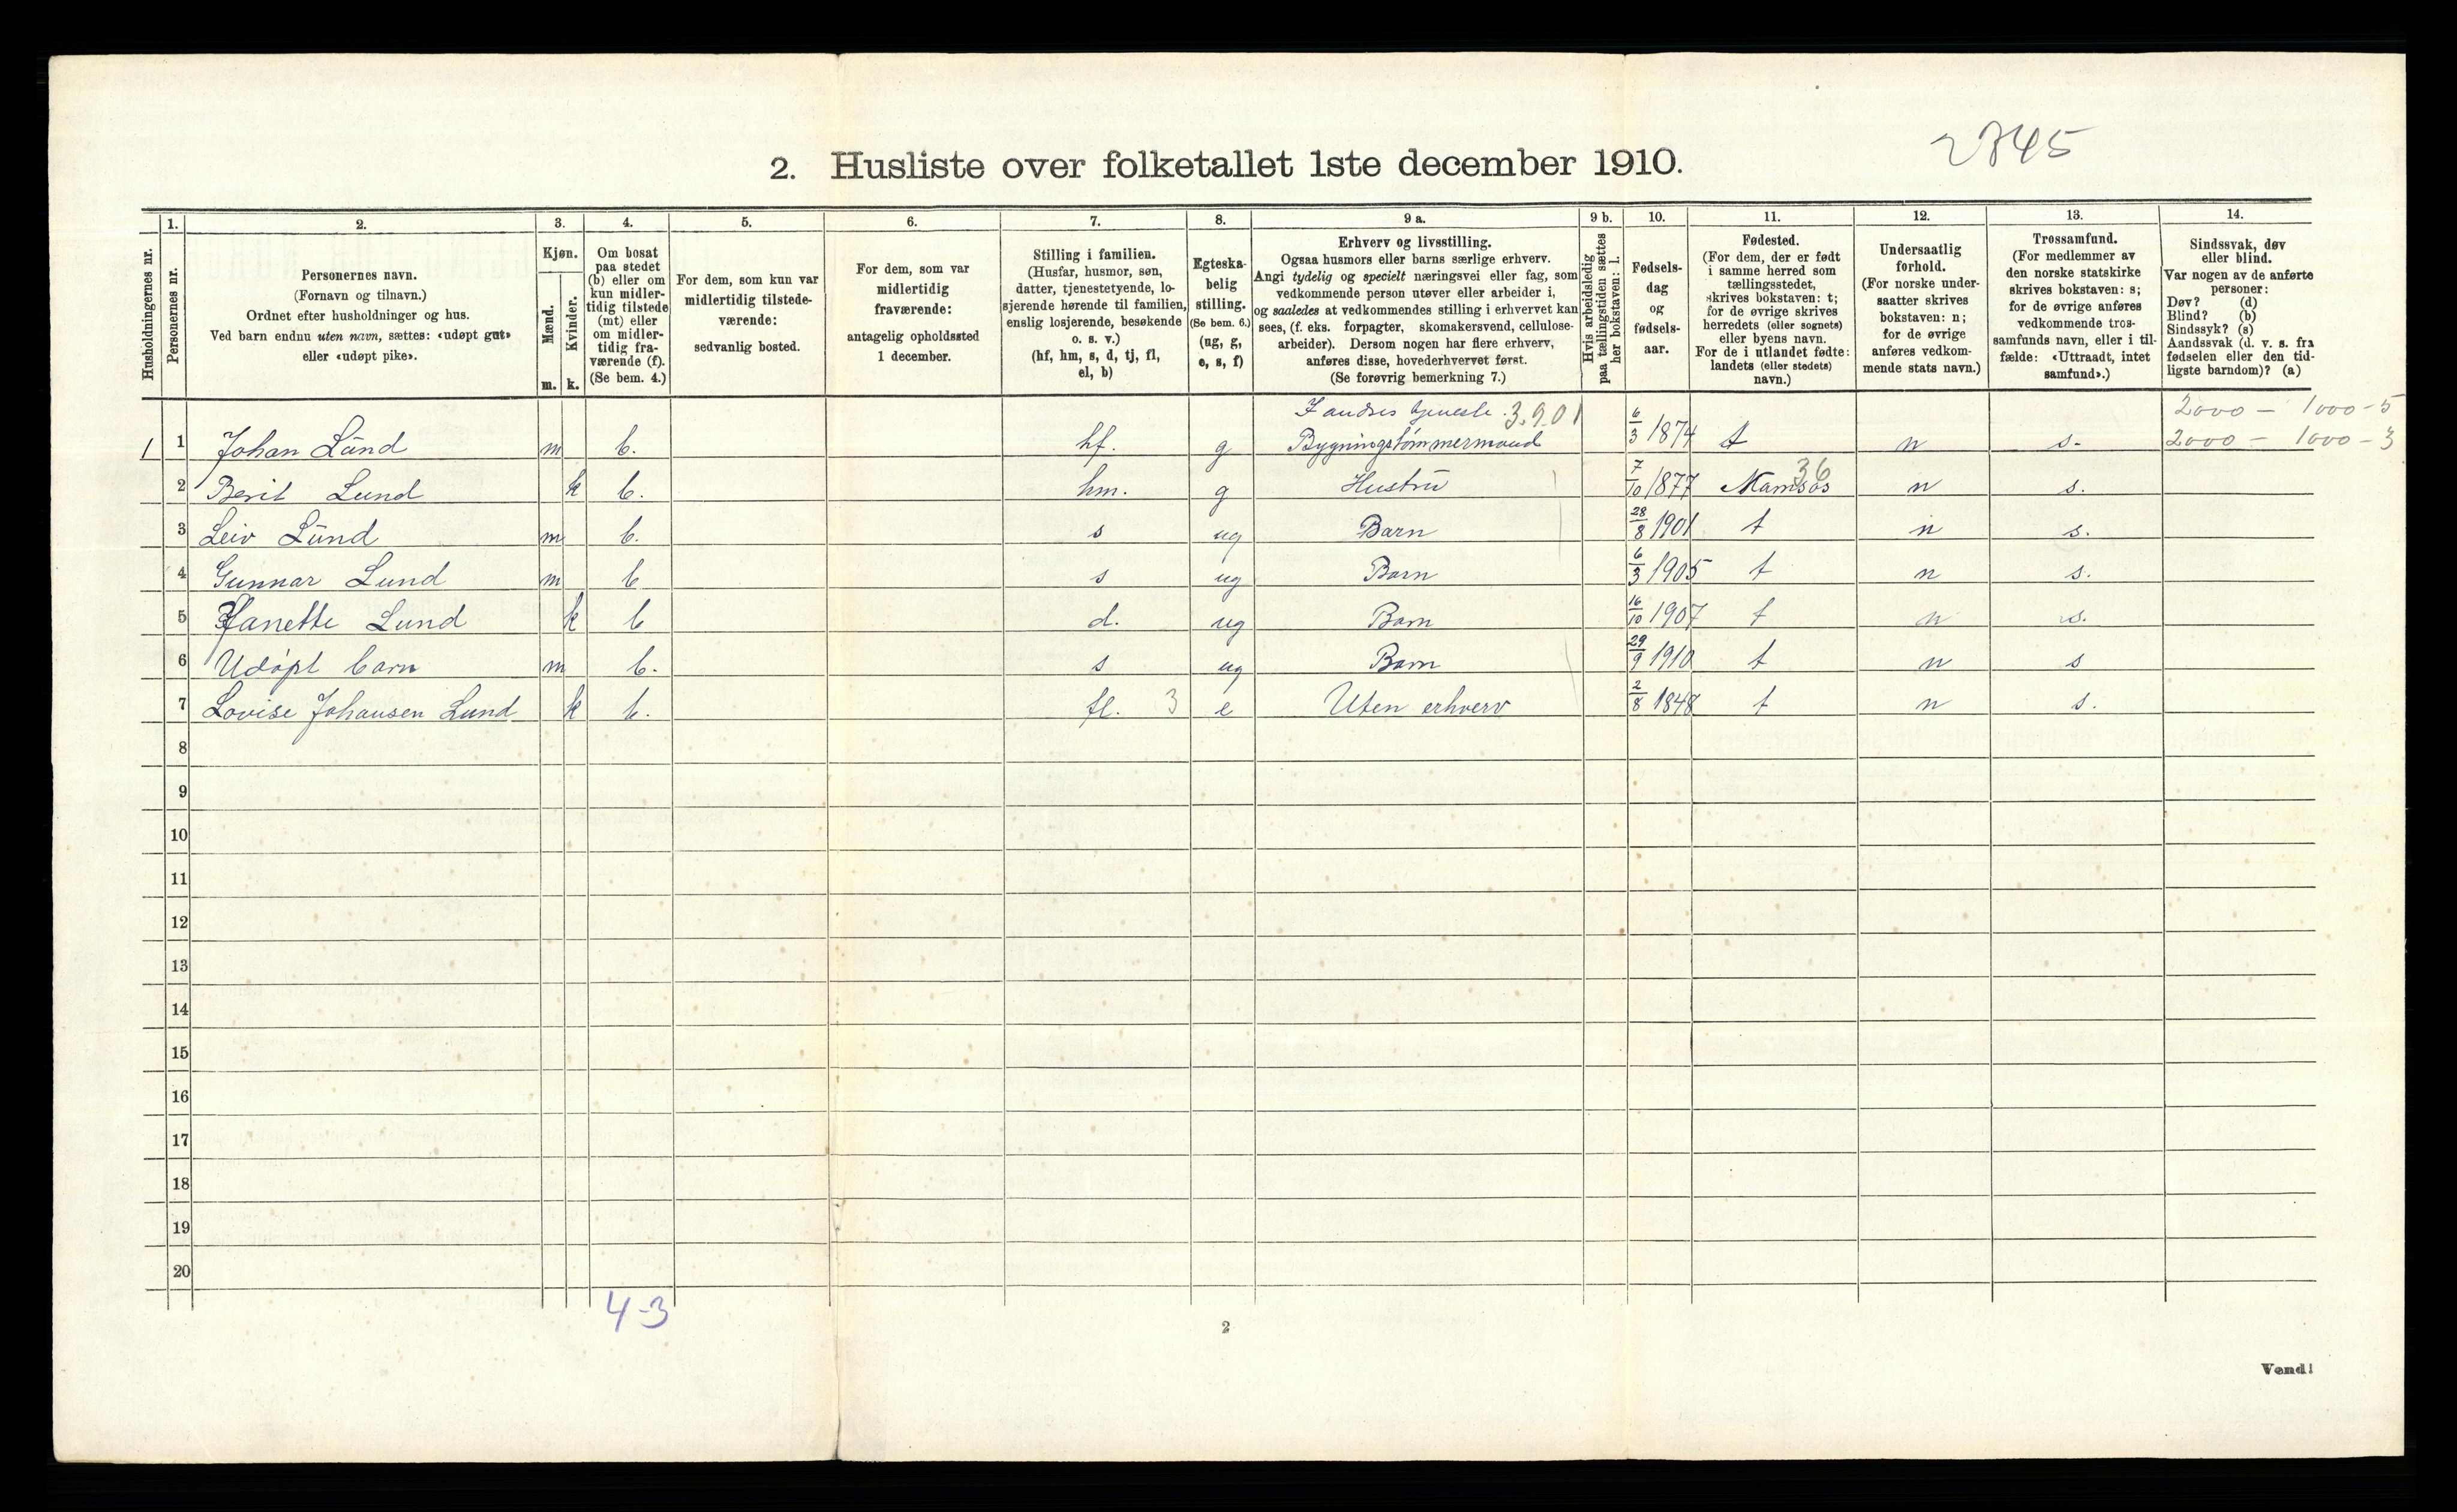 2845
2. Husliste over folketallet 1ste december 1910.
Husholdningernes nr.
1.
Personernes nr.
2.
Personernes navn.
(Fornavn og tilnavn.)
Ordnet efter husholdninger og hus.
Ved barn endnu uten navn, sættes: «udøpt gut»
eller «udøpt pike».
3.
Kjøn.
Mænd.
Kvinder.
m. k.
4.
Om bosat
paa stedet
(b) eller om
kun midler-
tidig tilstede
(mt) eller
om midler-
tidig fra-
værende (f).
(Se bem. 4.)
5.
For dem, som kun var
midlertidig tilstede-
værende:
sedvanlig bosted.
6.
For dem, som var
midlertidig
fraværende:
antagelig opholdssted
1 december.
7.
Stilling i familien.
(Husfar, husmor, søn,
datter, tjenestetyende, lo-
sjerende hørende til familien,
enslig losjerende, besøkende
o. s. v.)
(hf, hm, s, d, tj, fl,
el, b)
8.
Egteska-
belig
stilling.
(Se bem. 6.)
(ug, g,
e, s, f)
9 a.
Erhverv og livsstilling.
Ogsaa husmors eller barns særlige erhverv.
Angi tydelig og specielt næringsvei eller fag, som
vedkommende person utøver eller arbeider i,
og saaledes at vedkommendes stilling i erhvervet kan
sees, (f. eks. forpagter, skomakersvend, cellulose-
arbeider). Dersom nogen har flere erhverv,
anføres disse, hovederhvervet først.
(Se forøvrig bemerkning 7.)
9 b.
Hvis arbeidsledig
paa tællingstiden sættes
her bokstaven: l.
10.
Fødsels-
dag
og
fødsels-
aar.
11.
Fødested.
(For dem, der er født
i samme herred som
tællingsstedet,
skrives bokstaven: t;
for de øvrige skrives
herredets (eller sognets)
eller byens navn.
For de i utlandet fødte:
landets (eller stedets)
navn.)
12.
Undersaatlig
forhold.
(For norske under-
saatter skrives
bokstaven: n;
for de øvrige
anføres vedkom-
mende stats navn.)
13.
Trossamfund.
(For medlemmer av
den norske statskirke
skrives bokstaven: s;
for de øvrige anføres
vedkommende tros-
samfunds navn, eller i til-
fælde: «Uttraadt, intet
samfund».)
14.
Sindssvak, døv
eller blind.
Var nogen av de anførte
personer:
Døv? (d)
Blind? (b)
Sindssyk? (s)
Aandssvak (d. v. s. fra
fødselen eller den tid-
ligste barndom)? (a)
I andres tjeneste. 3.901 2000 - 1000 - 5
1 1 Johan Lund m b. hf. g Bygningstømmermand 6/3 1874 t n s. 2000 - 1000 - 3
36
2 Berit Lund k b. hm. g Hustru 7/10 1877 Namsos n s.
3 Leiv Lund m b. s ug Barn 28/8 1901 t n s.
4 Gunnar Lund m b s ug Barn 6/3 1905 t n s.
5 Hanette Lund k b d. ug Barn 16/10 1907 t n s.
6 Udøpt barn m b. s ug Barn 29/9 1910 t n s
7 Lovise Johansen Lund k b. fl. 3 e Uten erhverv 2/8 1848 t n s.
8
9
10
11
12
13
14
15
16
17
18
19
20
4-3
2
Vend!